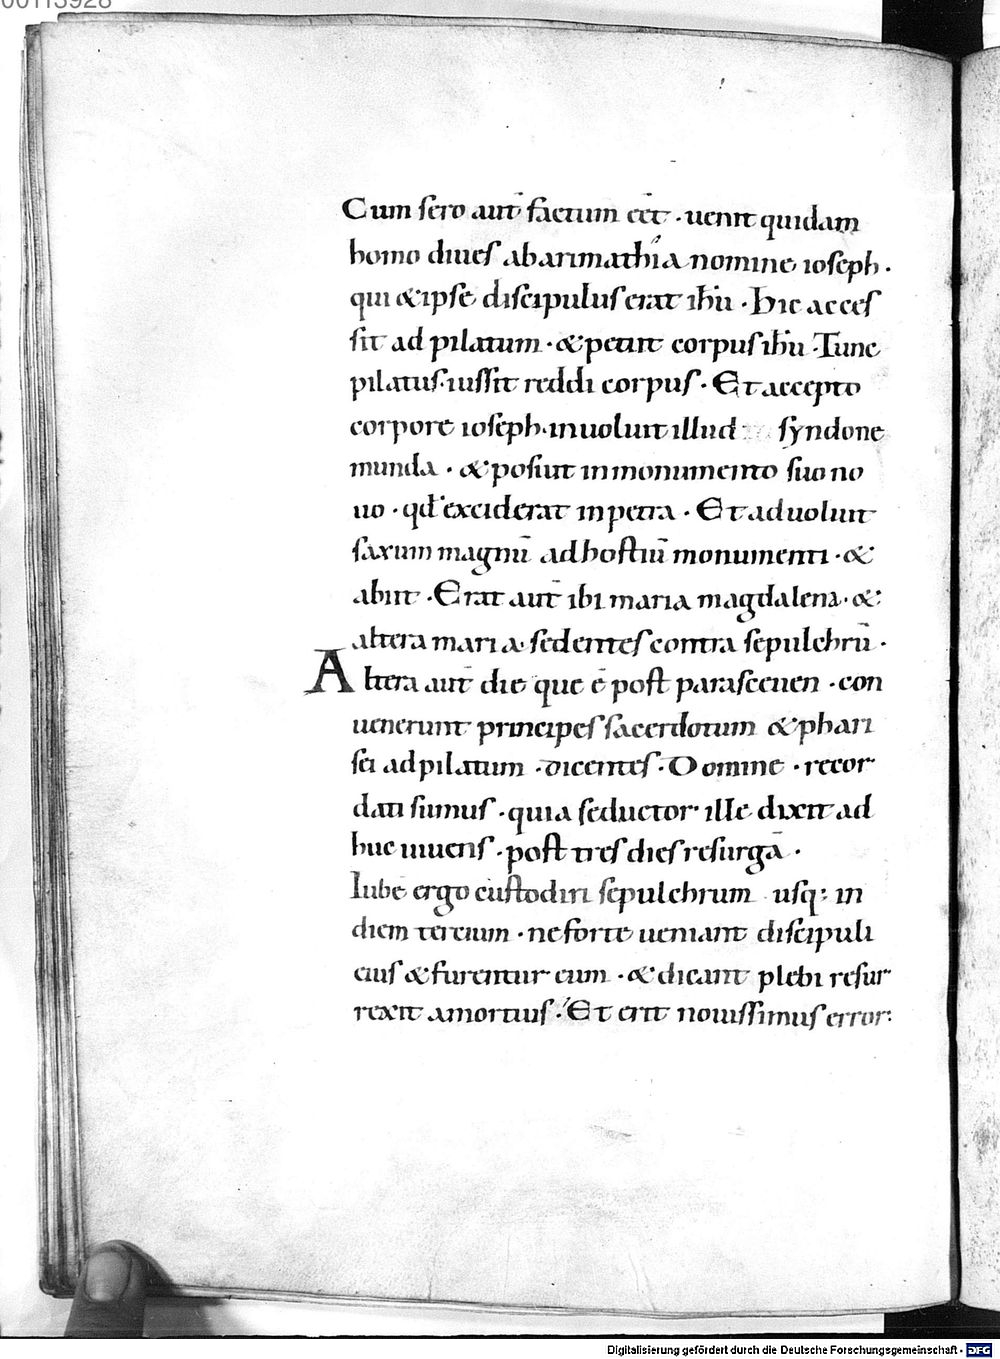 00113928
Cum sero aut̄ factum eēt · uenit quidam
homo diues abarimathia nomine ioseph ·
qui & ipse discipulus erat ih̄u · Hic acces
sit ad pilatum · & petiit corpus ih̄u · Tunc
pilatus · iussit reddi corpus · Et accepto
corpore ioseph · inuoluit illud syndone
munda · & posiut in monumento suo no
uo · qd̄ exciderat in petra · Et aduoluit
saxum magnū ad hostiū monumenti · &
abiit · Erat aut̄ ibi maria magdalena · &
altera maria sedentes contra sepulchrū ·
Altera aut̄ die que ē post parasceuen · con
uenerunt principes sacerdotum & phari
sei ad pilatum · dicentes · Domine · recor
dati sumus · quia seductor ille dixit ad
huc uiuens · post tres dies resurgā ·
Iube ergo custodiri sepulchrum usq; in
diem tercium · ne forte ueniant discipuli
eius & furentur eum · & dicant plebi resur
rexit amortius · Et erit nouissimus error
Digitalisierung gefördert durch die Deutsche Forschungsgemeinschaft - DFG